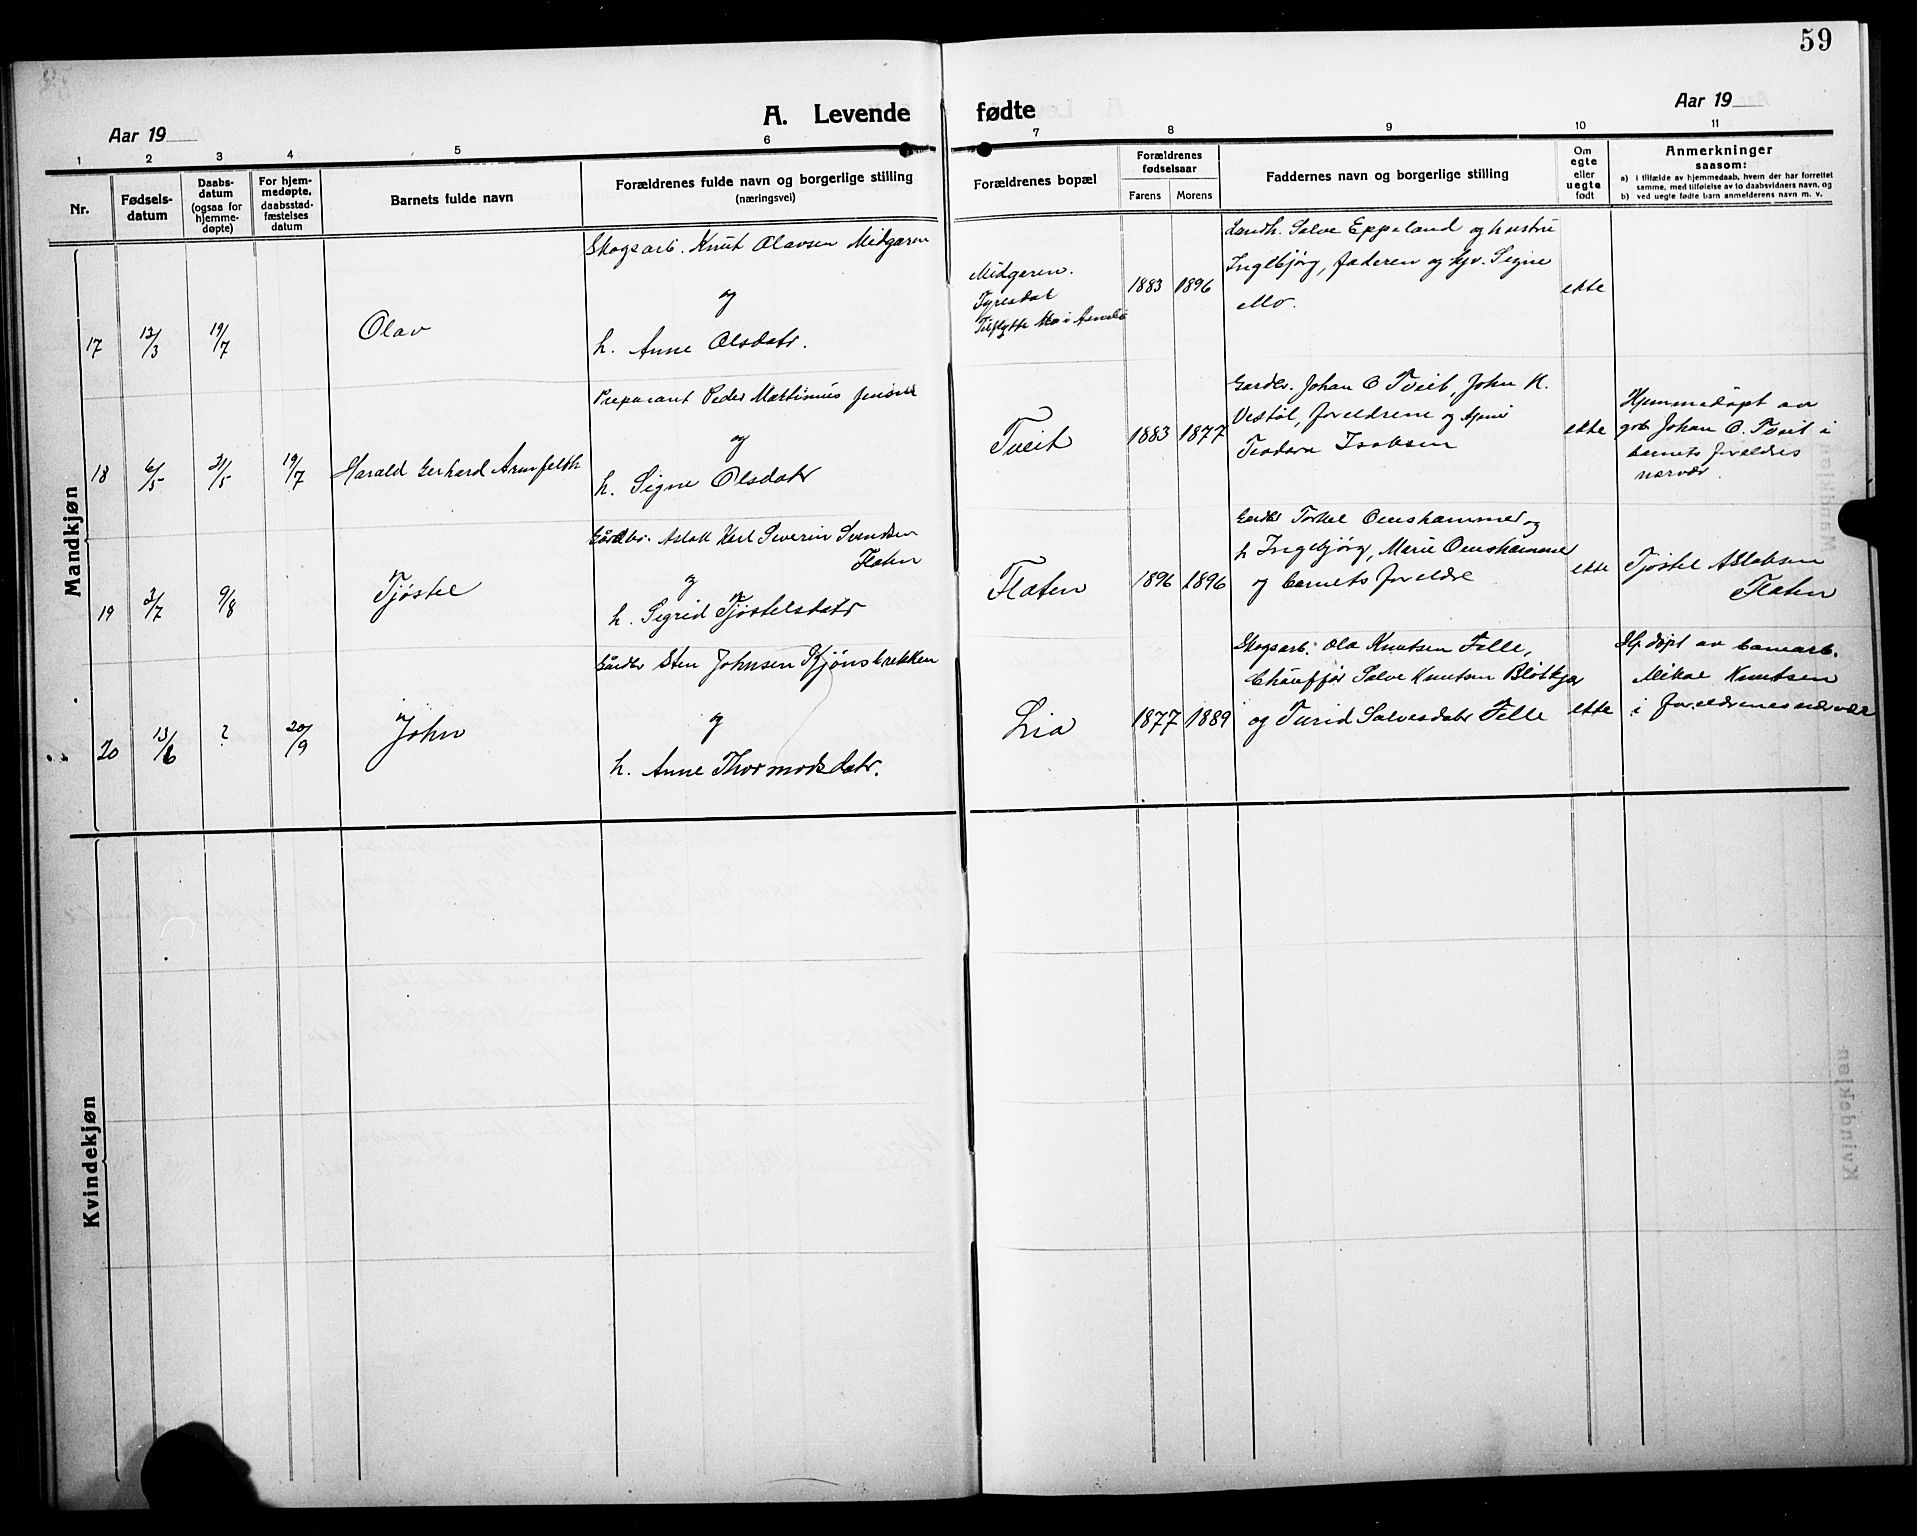 59
A. Levende fødte
Aar 19
Aar 19
1 2 3 4 5 6 7 8 9 10 11
Nr.
Fødsels-
datum
Daabs-
datum
(ogsaa for
hjemme-
døpte)
For hjem-
medøpte,
daabsstad-
fæstelses
datum
Barnets fulde navn
Forældrenes fulde navn og borgerlige stilling
(næringsvei)
Forældrenes bopæl
Forældrenes
fødselsaar
Farens
Morens
Faddernes navn og borgerlige stilling
Om
egte
eller
uegte
født
Anmerkninger
saasom:
a) i tilfælde av hjemmedaab, hvem der har forrettet
samme, med tilføielse av to daabsvidners navn, og
b) ved uegte fødte barn anmelderens navn m. v.
Mandkjøn
17
12/3
19/7
Olav
Skogsarb. Knut Olavsen Midgaren
og
h. Anne Olsdatr.
Midgaren.
Tyresdal
Tilflytte Mo i
1883
1896
Landh. Salve Eppeland og hustru
Ingebjørg, faderen og Signe
Mo.
ekte
18
6/5
31/5
19/7
Harald Gerhard Armfeldth
Preparant Peder Martinius Jensen
og
h. Signe Olsdatr
Tveit
1883
1877
Gardbr. Johan O Tveit, John K.
Vestøl, foreldrene og
Teodora Isaksen
ekte
Hjemmedøpt av
gbr. Johan O. Tveit i
barnets foreldres
nærvær.
19
2/7
9/8
Tjøstel
Gårdbr. Aslak Karl Severin Svendsen
Flaten
og
h. Sigrid Tjøstelsdatr
Flaten
1896
1896
Gardbr Torkel Omshammer og
h Ingebjørg, Marie Omshammer
og barnets foreldre
ekte
Tjøstel Aslaksen
Flaten
20
13/6
?
20/9
John
Gårdbr Sten Johnsen Kjønsbrekken
og
h. Anne Thormodsdatr.
Lia
1877
1889
Skogsarb. Ola Knutsen Felle,
Chauffjør Salve Knutsen Bløtkjær
og Turid Salvesdatr Felle
ekte
Hj døpt av banearb.
Mikal Knutsen
i foreldrenes nærvær
Kvindekjøn